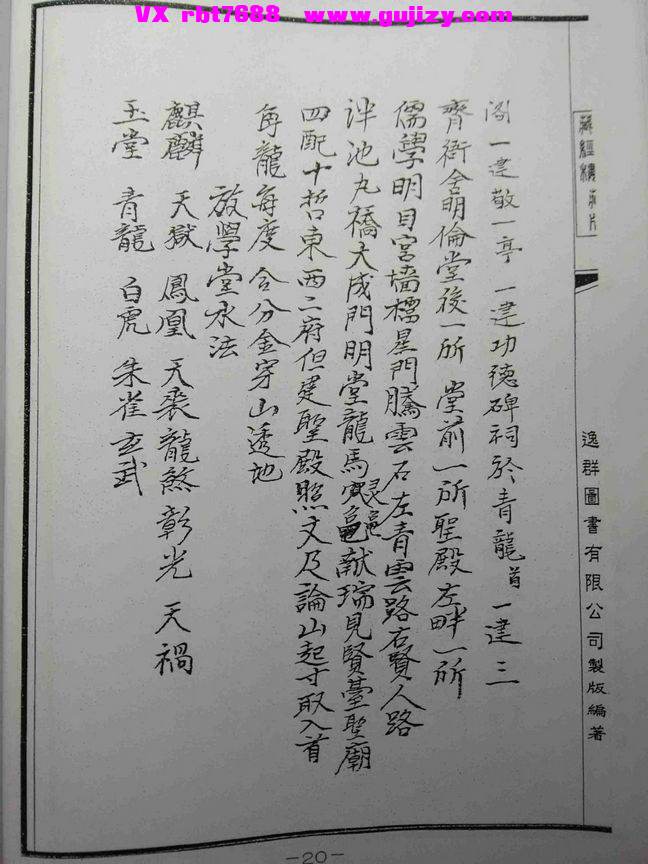 VX rbt7688 www.gujizy.com
閣一建敬一亭 一建功德碑祠於青龍首 一建三
齊衙舍明倫堂後一所 堂前一所聖殿左畔一所
儒學明月宮墻櫺星門騰雲石左青雲路右賢人路
泮池丸橋大成門明堂龍馬 獻瑞見賢臺聖廟
四配十哲東西二府但建聖殿照文及論山起寸取入首
角龍每度合分金穿山透地
放學堂水法
麒麟 天獄 鳳凰 天喪 龍煞 彰光 天禍
玉堂 青龍 白虎 朱雀 玄武
逸群圖書有限公司製版編著
-20-